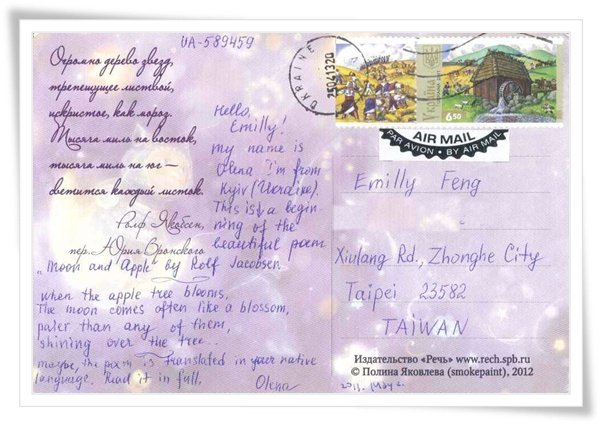 UA-589459
Огромно дерево звезд,
трепещущее листвой,
искристое, как мороз.
Тысяча миль на восток,
тысяча миль на юг –
светится каждый листок.
Ролф Якобсен,
пер. Юрия Вронского
Hello,
Emilly!
my name is
Olena I'm from
Kyiv (Ukraine).
This is a begin
ning of the
beautiful poem
„Moon and Apple" by Rolf Jacobsen.
when the apple tree blooms,
The moon comes often like a blossom,
paler than any of them,
shining over the tree..
maybe, the poem is translated in your native
language. Read it in full,
Olena
UKRAINE
250413 20
Україна
6.50
AIR MAIL
PAR AVION • BY AIR MAIL
Emilly Feng
Xiulang Rd., Zhonghe City
Taipei 23582
TAIWAN
Издательство «Речь» www.rech.spb.ru
© Полина Яковлева (smokepaint), 2012